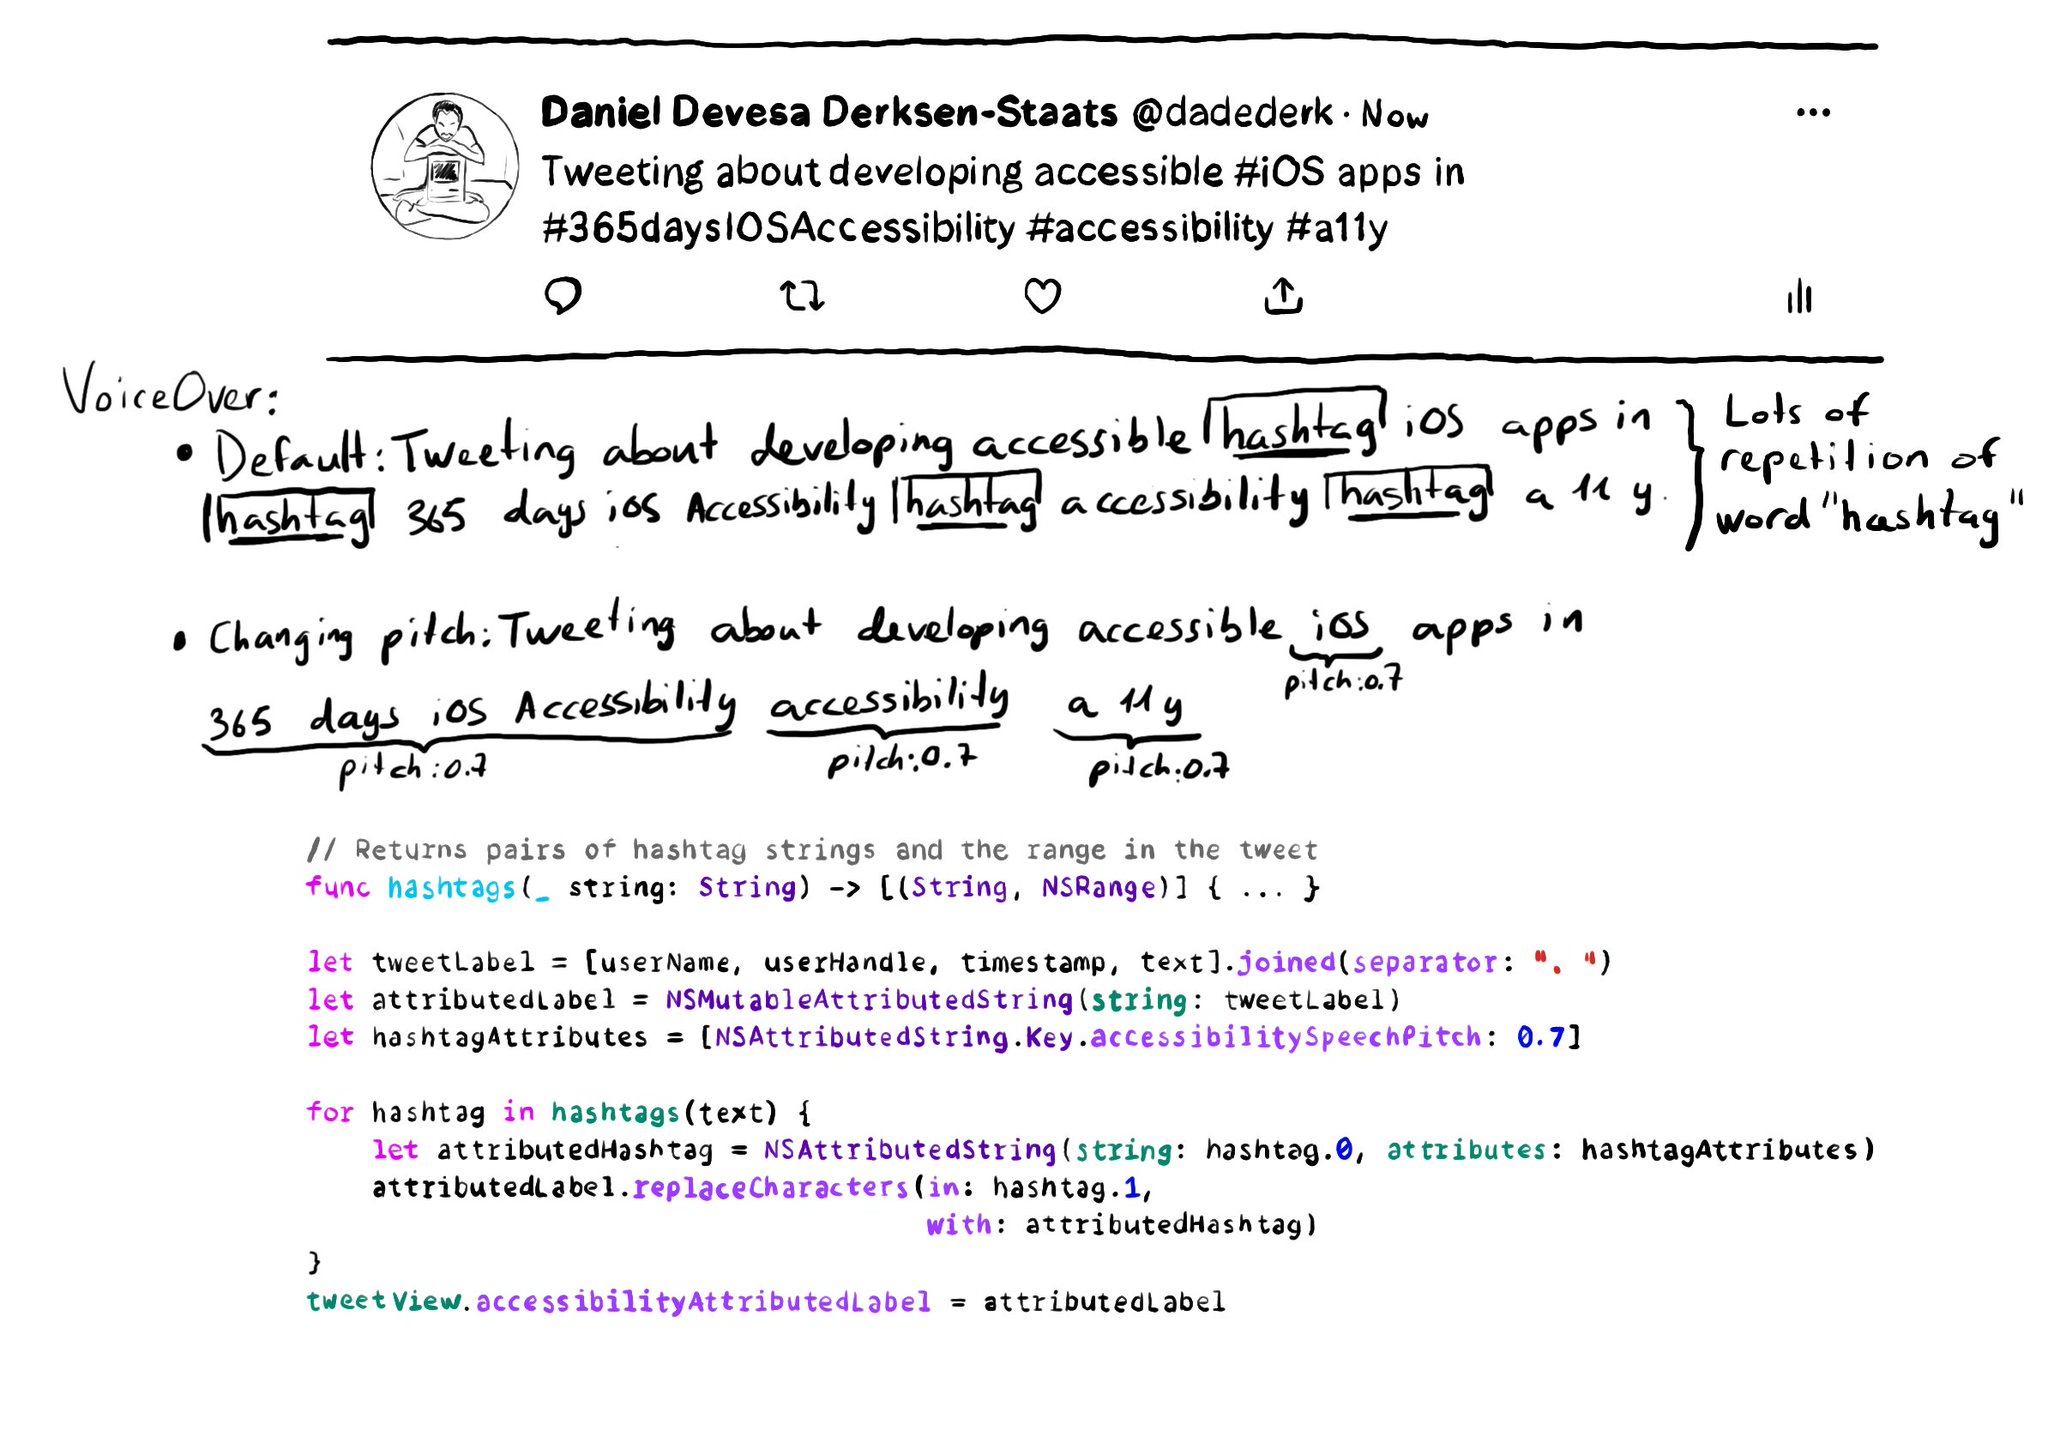 Daniel Devesa Derksen-Staats @dadederk · Now
...
Tweeting about developing accessible #iOS apps in
#365daysIOSAccessibility #accessibility #a11y
VoiceOver:
• Default: Tweeting about developing accessible hashtag iOS apps in
hashtag 365 days iOS Accessibility hashtag accessibility hashtag a 11 y.
Lots of
repetition of
word "hashtag"
• Changing pitch: Tweeting about developing accessible iOS apps in
pitch:0.7
365 days iOS Accessibility accessibility a 11 y
pitch:0.7 pitch:0.7 pitch:0.7
// Returns pairs of hashtag strings and the range in the tweet
func hashtags(_ string: String) -> [(String, NSRange)] { ... }
let tweetLabel = [userName, userHandle, timestamp, text].joined(separator: ". ")
let attributedLabel = NSMutableAttributedString(string: tweetLabel)
let hashtagAttributes = [NSAttributedString.Key.accessibilitySpeechPitch: 0.7]
for hashtag in hashtags(text) {
let attributedHashtag = NSAttributedString(string: hashtag.0, attributes: hashtagAttributes)
attributedLabel.replaceCharacters(in: hashtag.1,
with: attributedHashtag)
}
tweetView.accessibilityAttributedLabel = attributedLabel